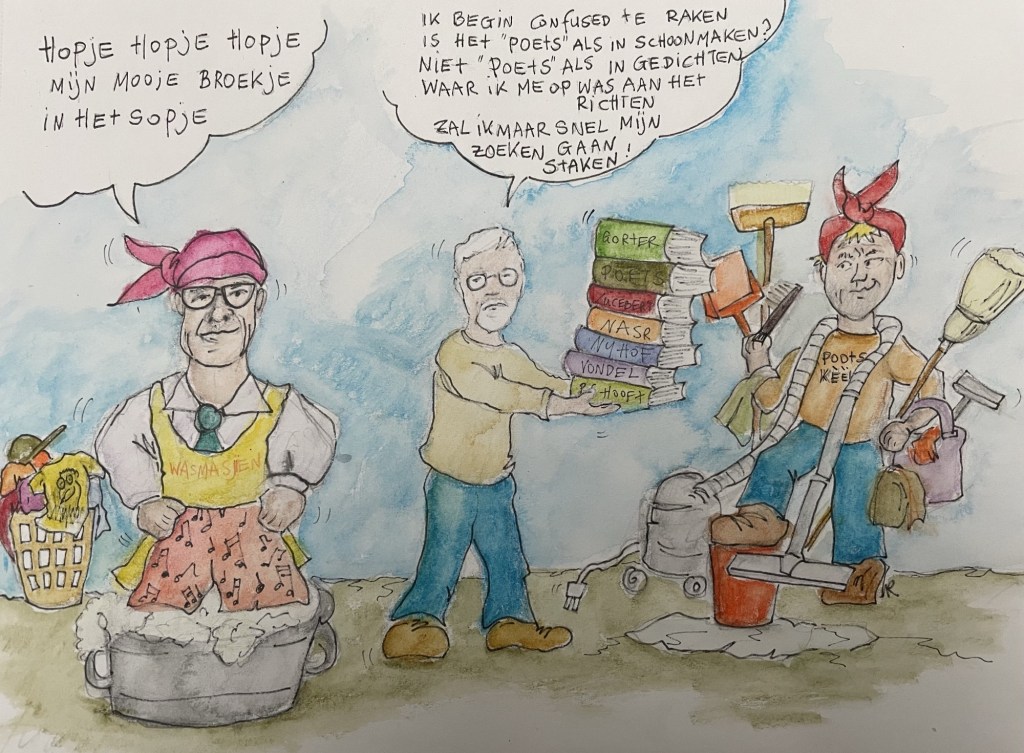 HOPJE HOPJE HOPJE
MIJN MOOJE BROEKJE
IN HET SOPJE
IK BEGIN CONFUSED TE RAKEN
IS HET "POETS" ALS IN SCHOONMAKEN?
NIET "POETS" ALS IN GEDICHTEN
WAAR IK ME OP WAS AAN HET
RICHTEN
ZAL IK MAAR SNEL MIJN
ZOEKEN GAAN
STAKEN!
WASMASJIEN
GORTER
POETS
LUCEBERT
NASR
NYHOF
VONDEL
HOOFT
POOTS
KËËL